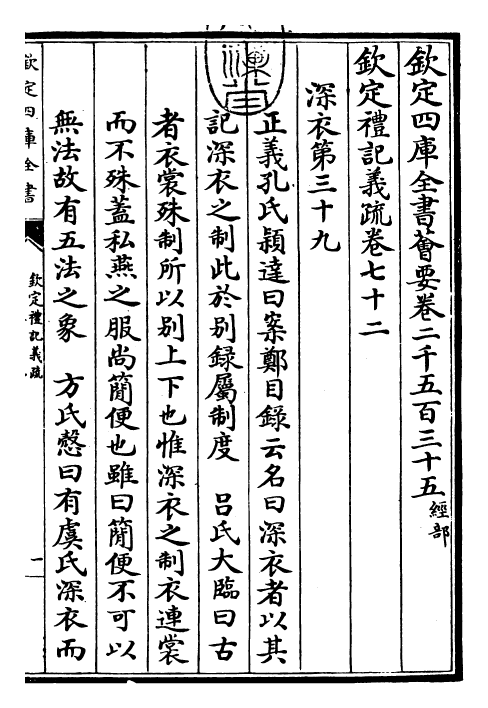 欽定四庫全書薈要卷二千五百三十五經部
欽定禮記義疏卷七十二
深衣第三十九
正義孔氏穎達曰案鄭目録云名曰深衣者以其
記深衣之制此於别録屬制度 吕氏大臨曰古
者衣裳殊制所以别上下也惟深衣之制衣連裳
而不殊蓋私燕之服尚簡便也雖曰簡便不可以
無法故有五法之象 方氏慤曰有虞氏深衣而
欽定四庫全書
欽定禮記義疏
一